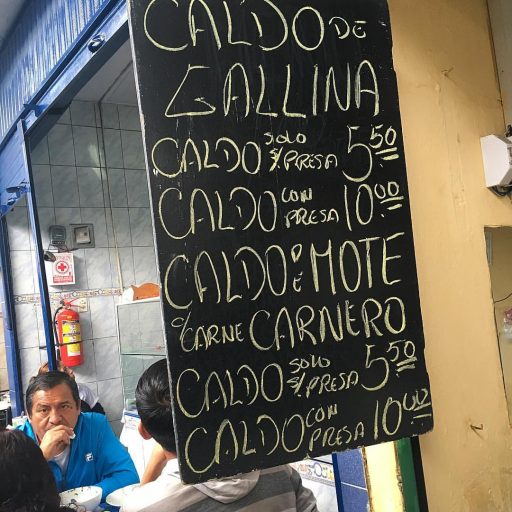 CALDO DE
GALLINA
CALDO SOLO S/PRESA 5.50
CALDO CON PRESA 10.00
CALDO DE MOTE
C/ CARNE CARNERO
CALDO SOLO S/PRESA 5.50
CALDO CON PRESA 10.00